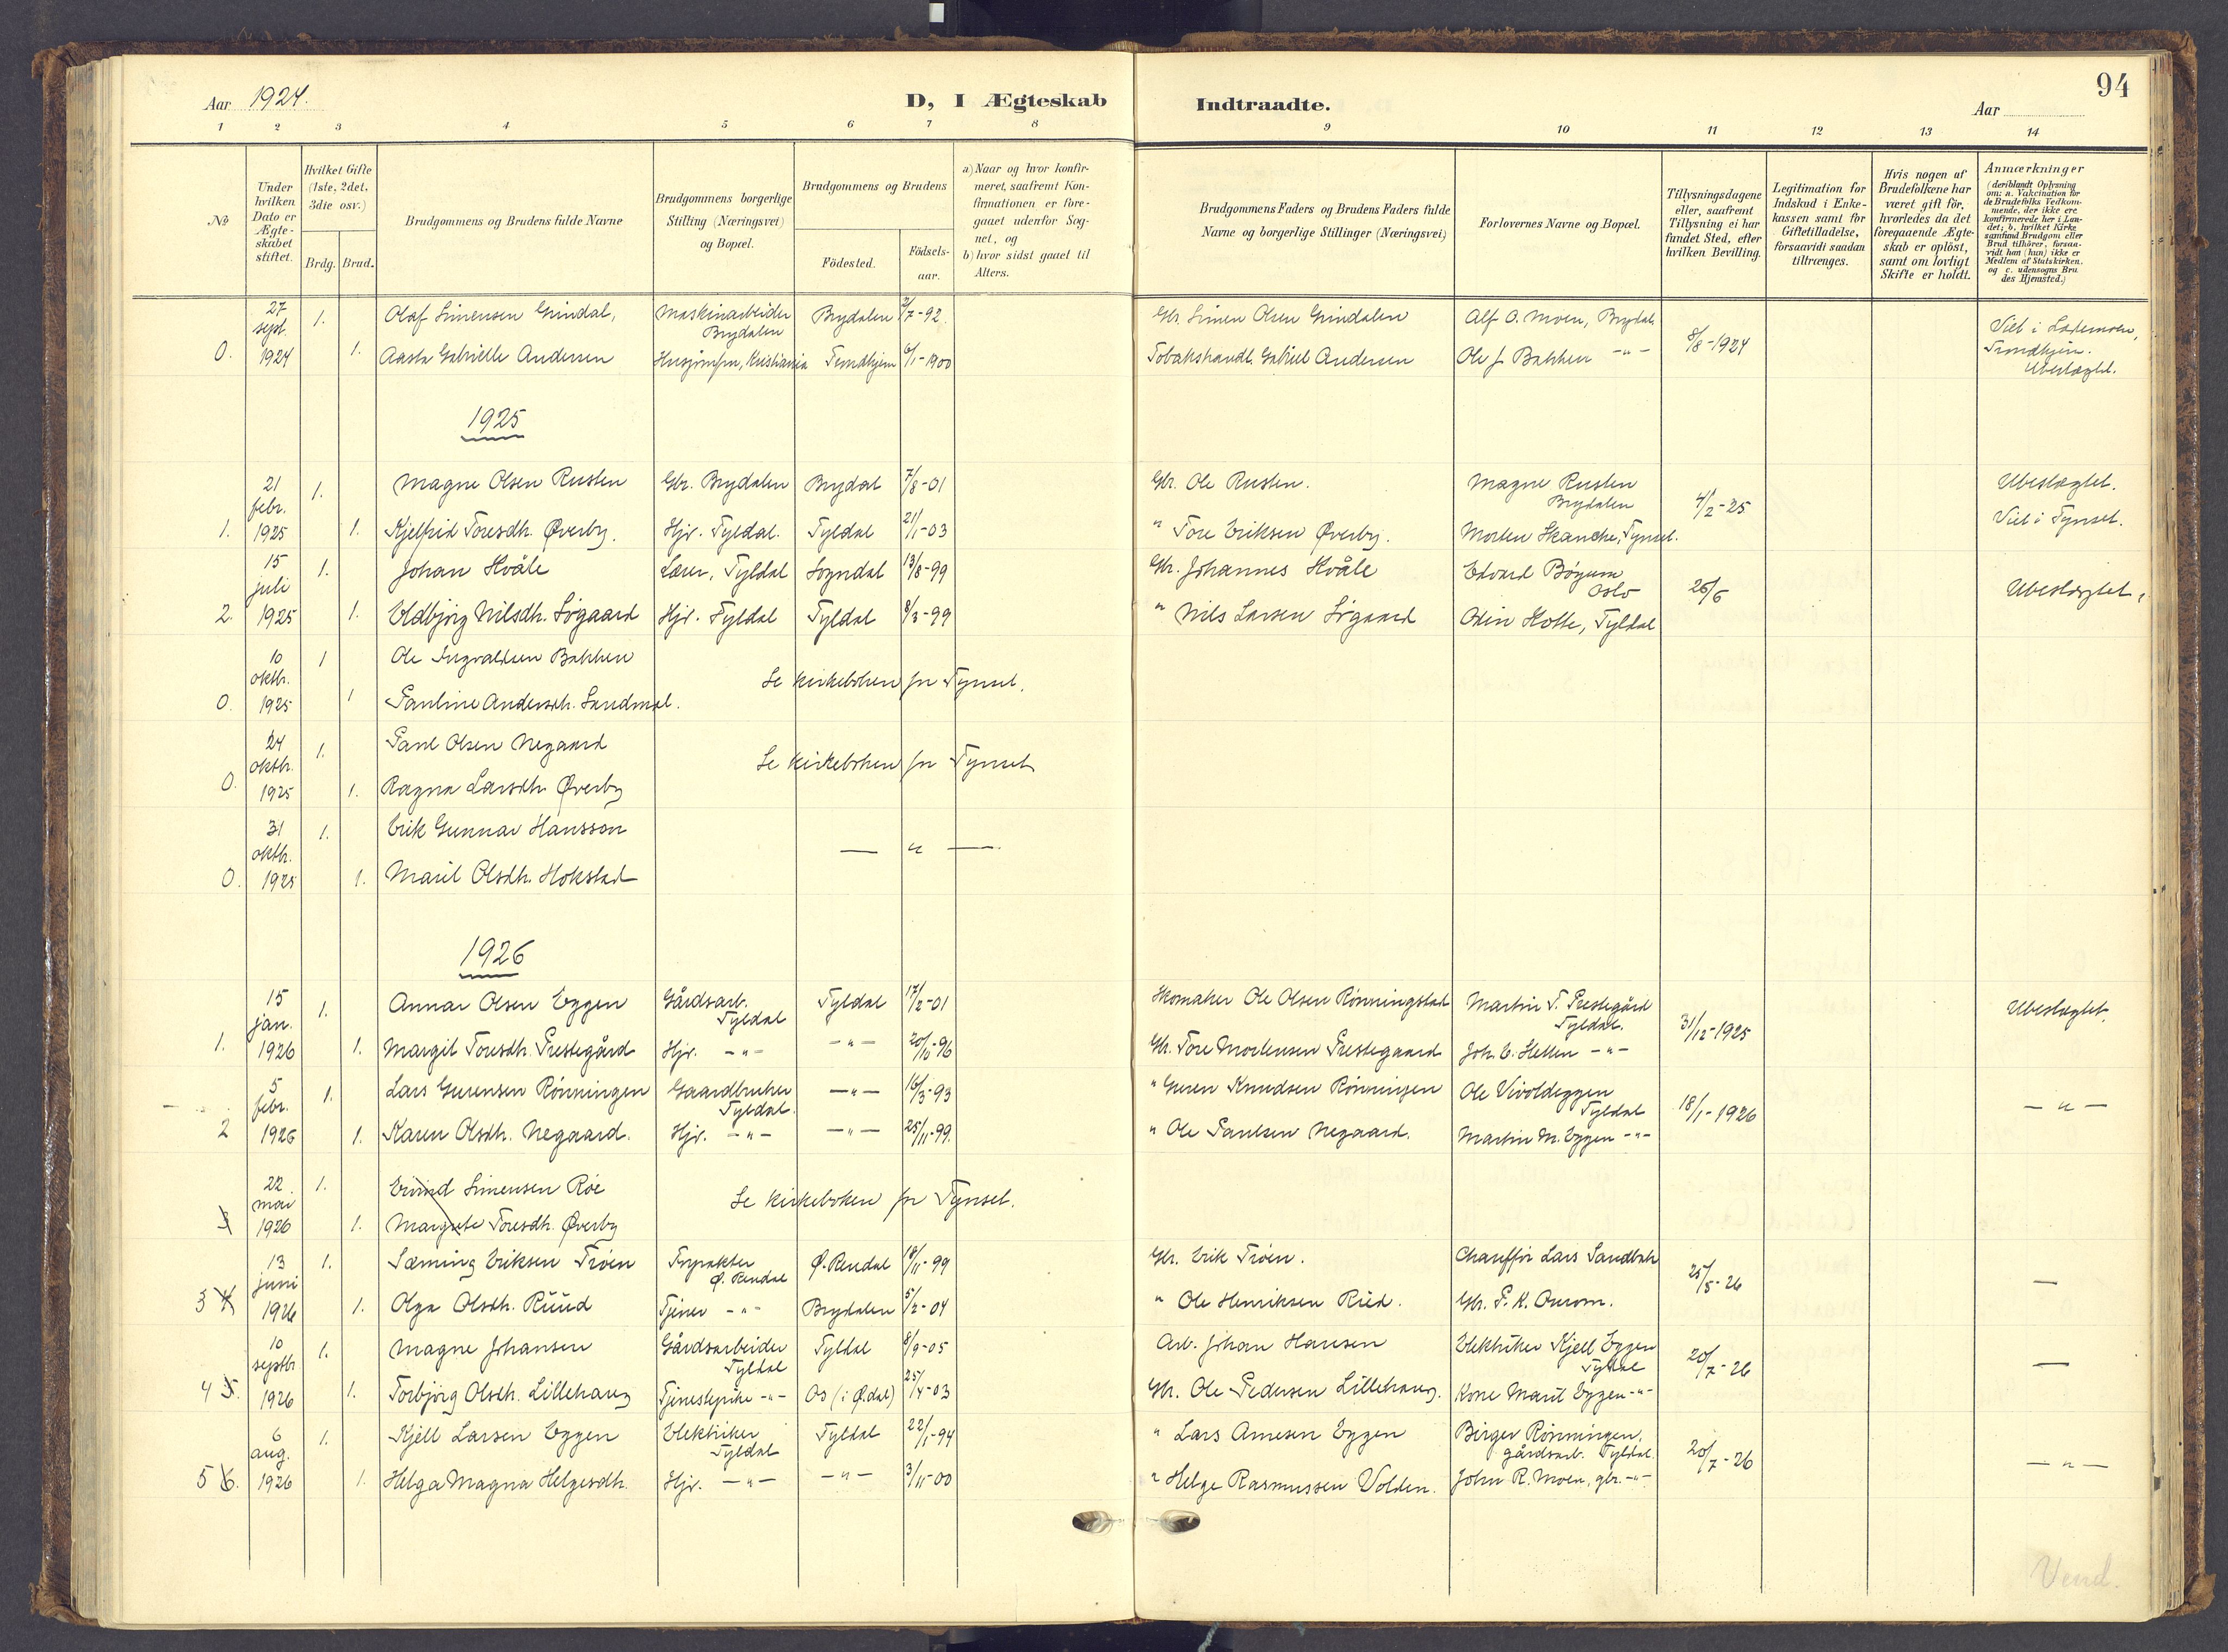 Aar 1924.
D, I Ægteskab
Indtraadte.
94
Aar
1 2 3 4 5 6 7 8
9 10 11 12 13 14
No
Under hvilken Dato er Ægte-skabet stiftet.
Hvilket Gifte (1ste, 2det, 3die osv.)
Brdg. Brud.
Brudgommens og Brudens fulde Navne
Brudgommens borgerlige Stilling (Næringsvei) og Bopæl.
Brudgommens og Brudens
Födested.
Födsels-aar.
a) Naar og hvor konfir-meret, saafremt Kon-firmationen er fore-gaaet udenfor Sog-net, og
b) hvor sidst gaaet til Alters.
Brudgommens Faders og Brudens Faders fulde Navne og borgerlige Stillinger (Næringsvei)
Forlovernes Navne og Bopæl.
Tillysningsdagene eller, saafremt Tillysning ei har fundet Sted, efter hvilken Bevilling.
Legitimation for Indskud i Enke-kassen samt for Giftetilladelse, forsaavidt saadan tiltrænges.
Hvis nogen af Brudefolkene har været gift för, hvorledes da det foregaaende Ægte-skab er oplöst, samt om lovligt Skifte er holdt.
Anmærkninger
(deriblandt Oplysning om: a. Vaccination for de Brudefolks Vedkom-mende, der ikke ere konfirmerede her i Lan-det; b. hvilket Kirke-samfund Brudgom eller Brud tilhörer, forsaa-vidt han (hun) ikke er Medlem af Statskirken, og c. udensogns Bru-des Hjemsted.)
27 sept. 1. Olaf Simensen Grindal, Maskinarbeider Brydalen Brydalen 7-92 Gbr. Simen Olsen Grindalen Alf O. Moen, Brydal. 8/8-1924 Viet i Lademoen, Trondhjem. Ubeslægtet.
0. 1924 1. Aasta Gabrielle Andersen Husjomfru, Kristiania Trondhjem 6/1-1900 Tobakshandl. Gabriel Andersen Ole J. Bakken -"-
1925
21 febr. 1. Magne Olsen Rusten Gbr. Brydalen Brydal 7/8-01 Gbr. Ole Rusten. Magne Rusten Brydalen 4/2-25 Ubeslægtet.
1. 1925 1. Kjelfrid Toresdh. Øverby. Hjv. Tyldal. Tyldal 21/1-03 " Tore Eriksen Øverby. Morten Skancke, Tynset. Viet i Tynset.
15 juli 1. Johan Hvåle Lærer, Tyldal Sogndal 13/8-99 Gbr. Johannes Hvåle Edvard Bøyum Oslo 26/6 Ubeslægtet,
2. 1925 1. Eldbjørg Nilsdh. Sjøgaard Hjv. Tyldal Tyldal 8/3-99 " Nils Larsen Sjøgaard Odin Hotte, Tyldal
10 oktbr. 1 Ole Ingvaldsen Bakken
0. 1925 1 Pauline Andersdh. Sandmæl. Se kirkeboken for Tynset.
24 oktbr. 1. Paul Olsen Negaard
0. 1925 1. Ragna Larsdh. Øverby Se kirkeboken for Tynset
31 oktbr. 1. Erik Gunnar Hansson
0. 1925 1. Marit Olsdh. Hokstad — " —
1926
15 jan. 1. Annar Olsen Eggen Gårdsarb. Tyldal Tyldal 17/2-01 Skomaker Ole Olsen Rønningstad Martin T. Prestegård Tyldal. 31/12-1925 Ubeslægtet.
1. 1926 1. Margit Toresdh. Prestegård Hjv. -"- -"- 20/10-96 Gbr. Tore Mortensen Prestegaard Joh. E. Hellen -"-
5 febr. 1. Lars Gurensen Rønningen Gaardbruker Tyldal. -"- 16/3-93 " Guren Knudsen Rønningen Ole Vivoldeggen Tyldal 18/1-1926 — " —
2 1926 1. Karen Olsdh. Negaard. Hjv. -"- -"- 25/11-99. " Ole Paulsen Negaard. Martin M. Eggen -"-
22 mai 1. Eivind Simensen Røe
3 1926 1. Margrete Toresdh. Øverby Se kirkeboken for Tynset.
13 juni 1. Sæming Eriksen Trøen Forpakter Ø. Rendal Ø. Rendal 18/11-99 Gbr. Erik Trøen. Chauffør Lars Sandbak 25/5-26 —
3 4 1926 1. Olga Olsdh. Rüüd Tjener -"- Brydalen 5/2-04 " Ole Henriksen Rüd. Gbr. P. K.
10 septbr 1. Magne Johansen Gårdsarbeider Tyldal Tyldal 8/9-05 Arb. Johan Hansen Elektriker Kjell Eggen Tyldal 20/7-26 —
4 5. 1926 1. Torbjørg Olsdh. Lillehaug Tjenestepike -"- Os (i Ø.dal) 25/4-03 Gbr. Ole Pedersen Lillehaug. Kone Marit Eggen -"-
6 aug. 1. Kjell Larsen Eggen Elektriker Tyldal Tyldal 22/1-94 " Lars Arnesen Eggen Birger Rønningen, gårdsarb. Tyldal. 20/7-26 — " —
5 6. 1926 1. Helga Magna Helgesdh. Hjv. -"- -"- 3/11-00 " Helge Rasmussen Volden. John R. Moen, gbr. -"-
Vend.